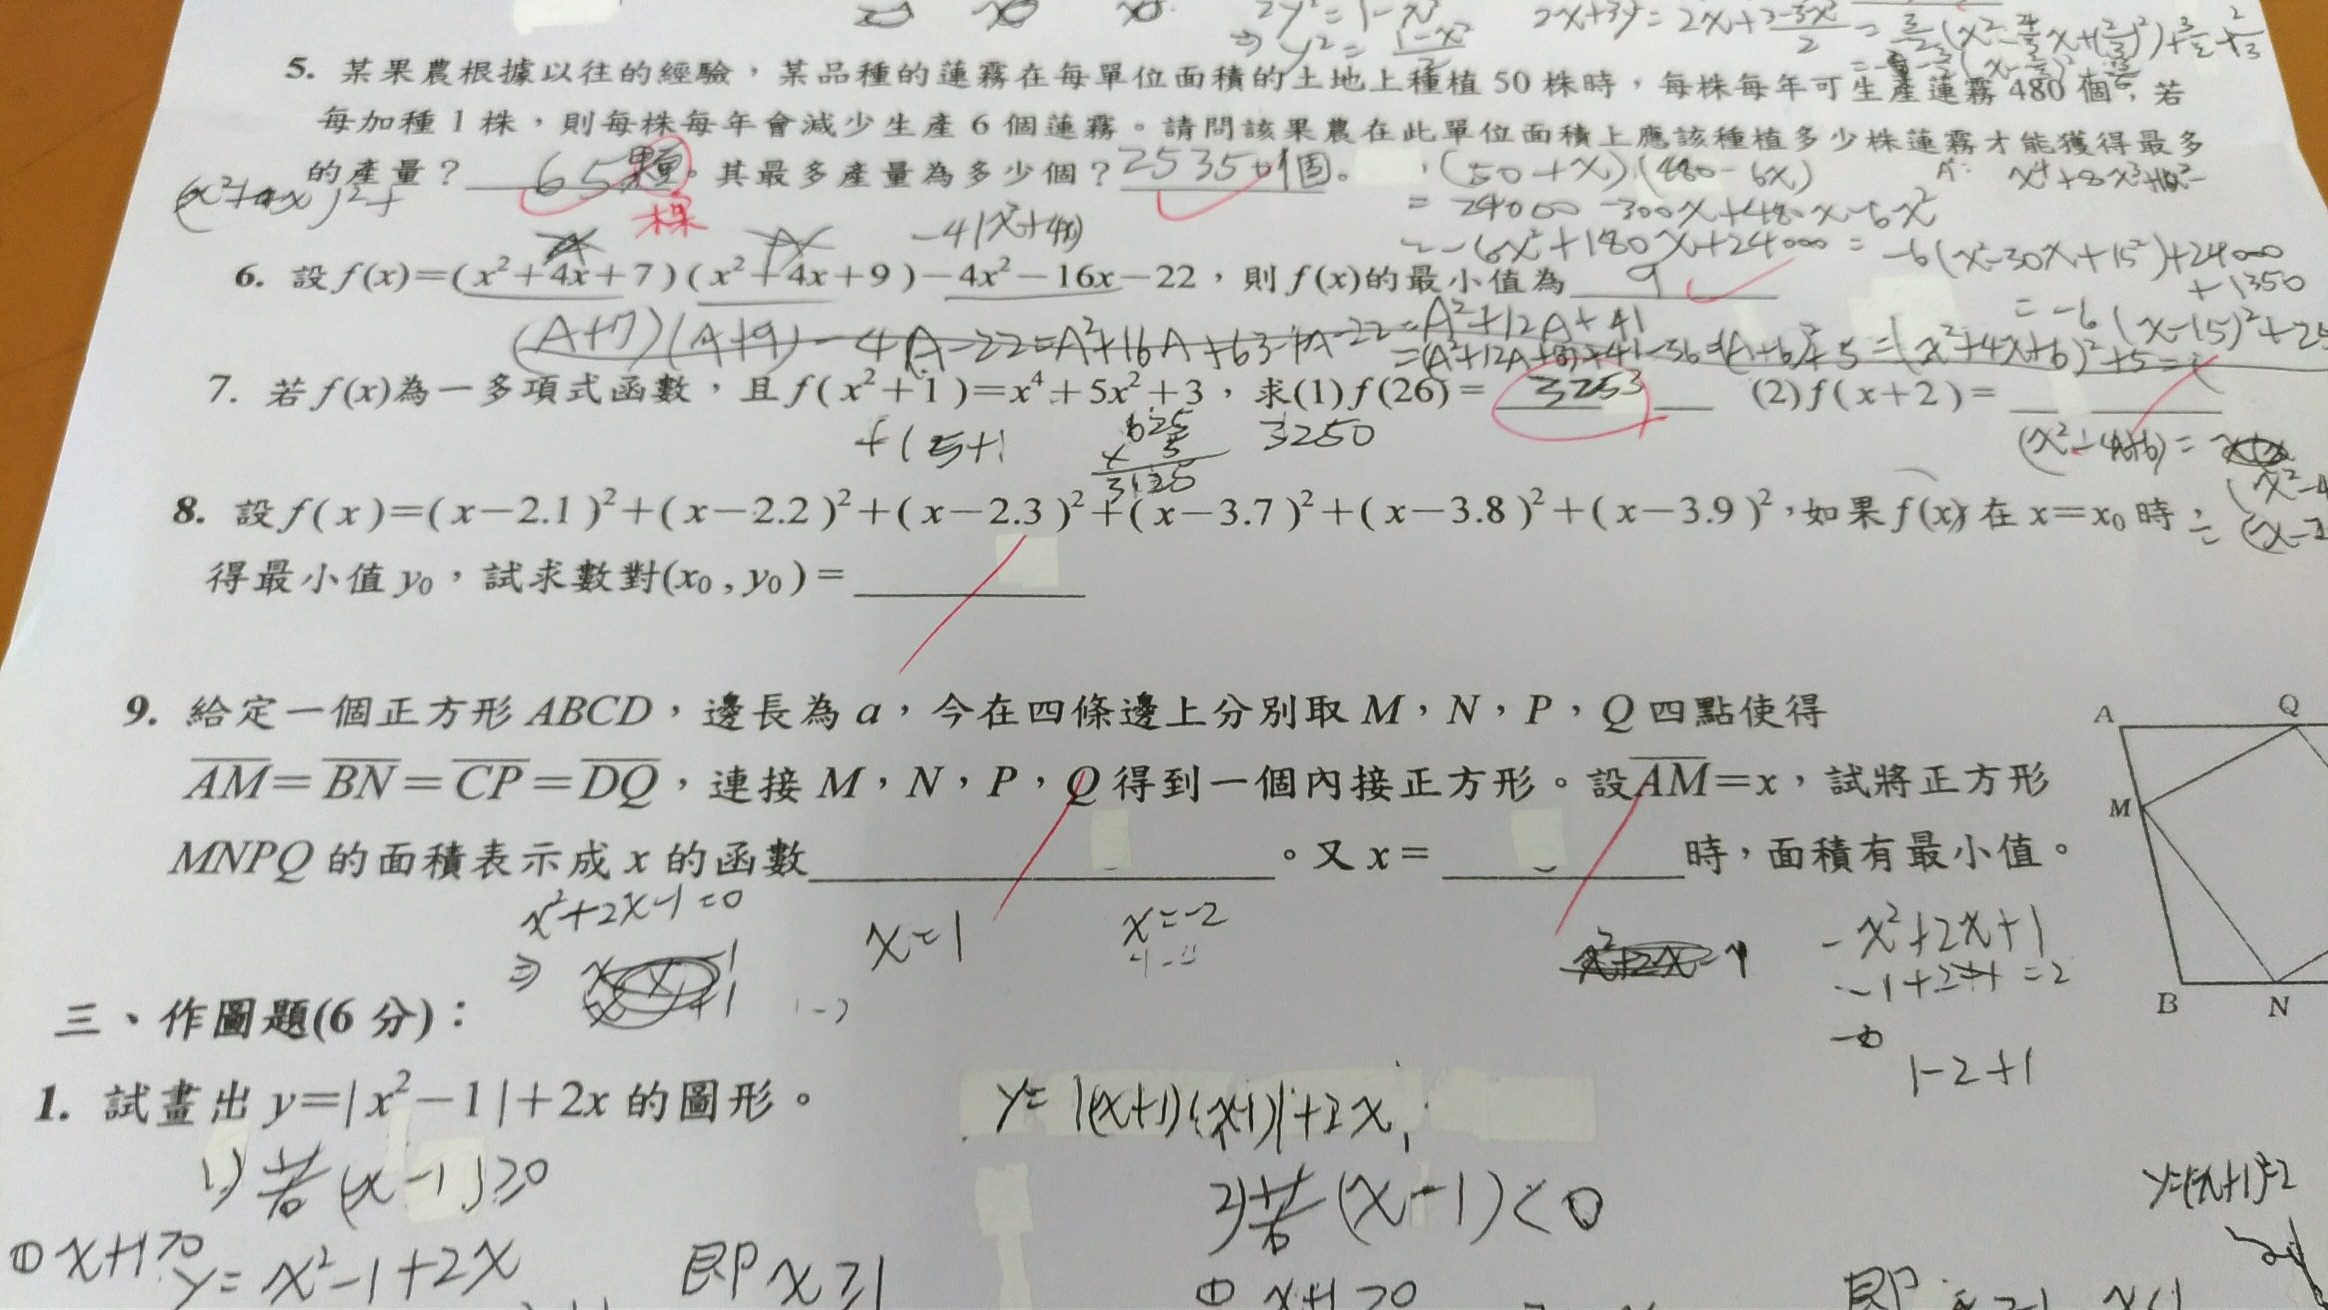 2y²=1-x²
⇒ y²=(1-x²)/2
5. 某果農根據以往的經驗，某品種的蓮霧在每單位面積的土地上種植 50 株時，每株每年可生產蓮霧 480 個，若
每加種 1 株，則每株每年會減少生產 6 個蓮霧。請問該果農在此單位面積上應該種植多少株蓮霧才能獲得最多
的產量？ 65顆。其最多產量為多少個？25350個。
株
(50+x)(480-6x)
= 24000-300x+480x-6x²
= -6x²+180x+24000 = -6(x²-30x+15²)+24000
+1350
= -6(x-15)²+25
-4(x²+4x)
6. 設 f(x)=(x²+4x+7)(x²+4x+9)-4x²-16x-22，則 f(x)的最小值為 9
(A+7)(A+9)-4A-22=A²+16A+63-4A-22=A²+12A+41
=(A²+12A+36)+41-36=(A+6)²+5=(x²+4x+6)²+5=
7. 若 f(x)為一多項式函數，且 f(x²+1)=x⁴+5x²+3，求(1) f(26)= 3253 (2) f(x+2)=
f(5+1
625
× 5
3125
3250
8. 設 f(x)=(x-2.1)²+(x-2.2)²+(x-2.3)²+(x-3.7)²+(x-3.8)²+(x-3.9)²，如果 f(x) 在 x=x₀ 時，
得最小值 y₀，試求數對(x₀, y₀)=
9. 給定一個正方形 ABCD，邊長為 a，今在四條邊上分別取 M，N，P，Q 四點使得
AM=BN=CP=DQ，連接 M，N，P，Q 得到一個內接正方形。設AM=x，試將正方形
MNPQ 的面積表示成 x 的函數。又 x= 時，面積有最小值。
A Q
M
B N
x²+2x-1=0
x=1
x=-2
-x²+2x+1
-1+2+1=2
1-2+1
三、作圖題(6 分)：
1. 試畫出 y=|x²-1|+2x 的圖形。
y=|(x+1)(x-1)|+2x
1)若(x-1)≥0
2)若(x-1)<0
① x+1≥0
y=x²-1+2x
即 x≥1
① x+1≥0
即